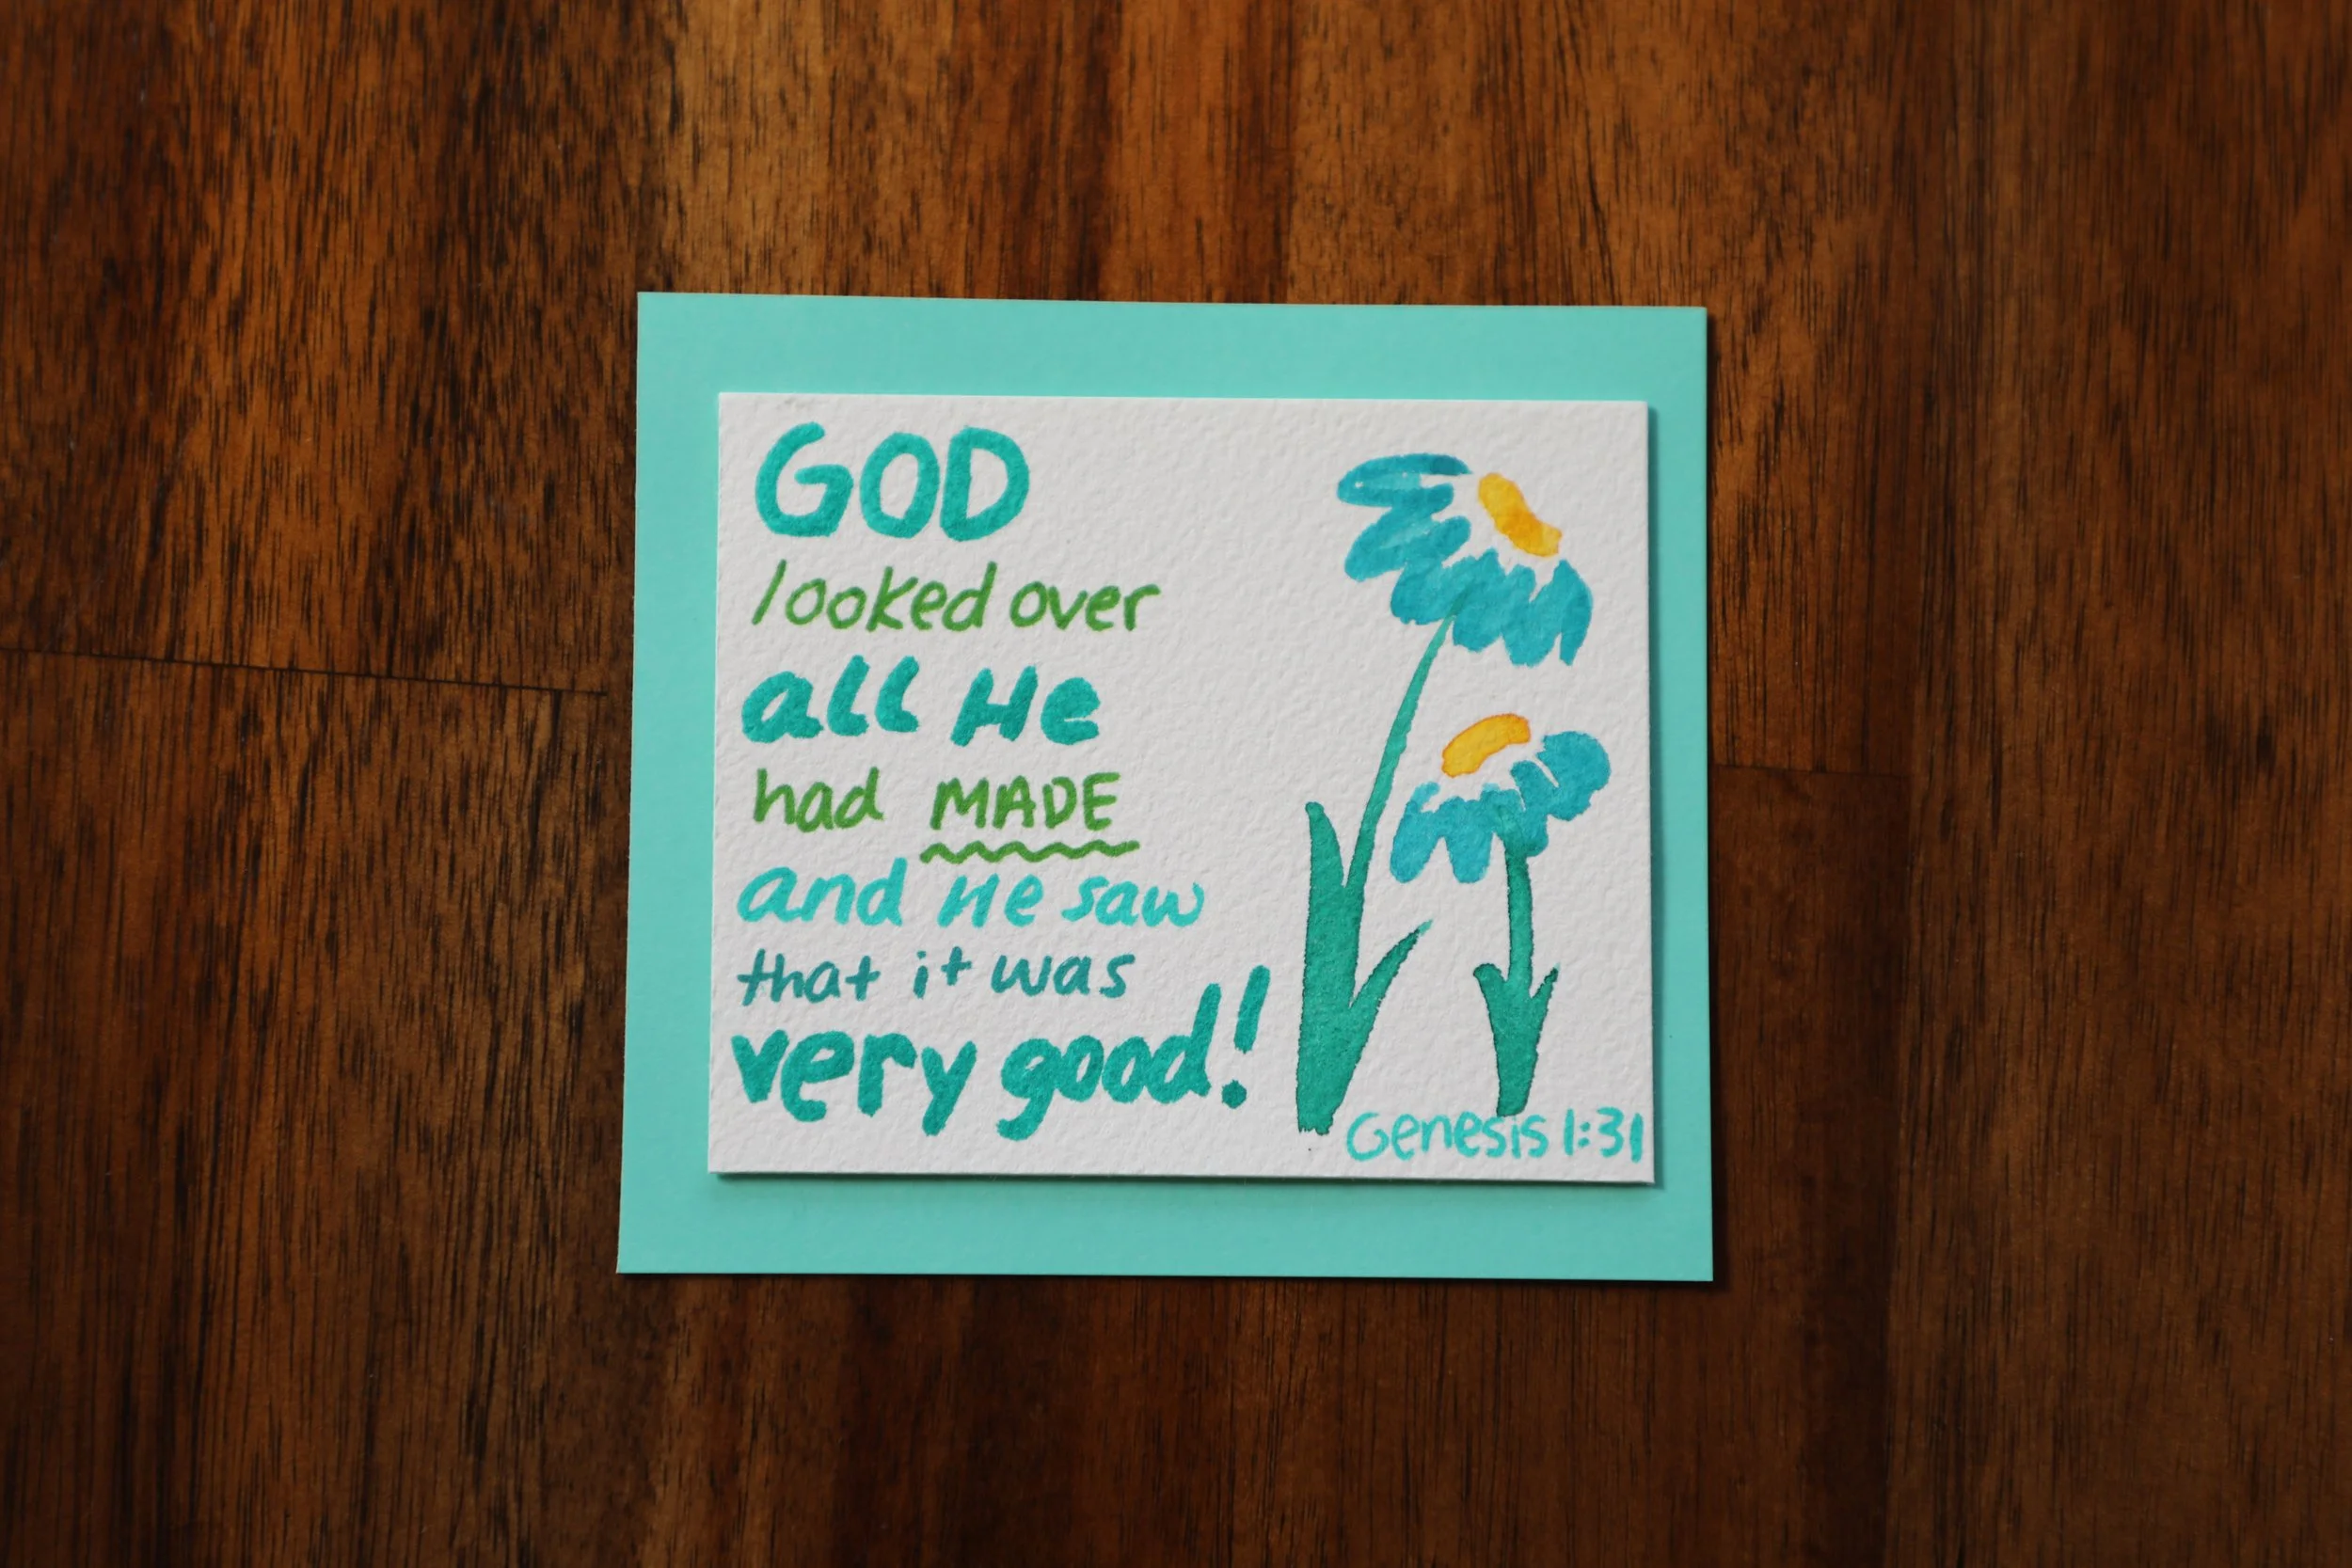 GOD
looked over
all He
had MADE
and He saw
that it was
very good!
Genesis 1:31